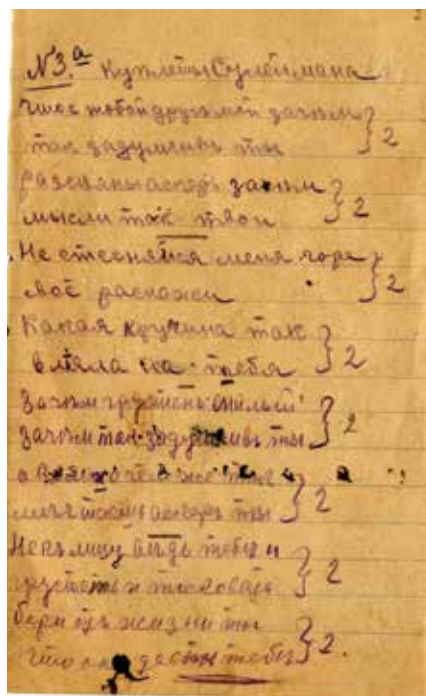 №3.а Куплеты Сулеймана
что с тобой друг мой зачѣм } 2
так задумчивъ ты
разсѣяны аскеръ зачѣм } 2
мысли так твои
Не стесняйся меня горе } 2
своё раскажи
Какая кручина так } 2
вляла на тебя
Зачѣм грустенъ милый } 2
зачѣм так задумчивъ ты
о } 2
аскеръ ты
Не къ лицу вѣдь тебѣ и } 2
грустить и тосковать
бери отъ жизни ты } 2.
что тебѣ